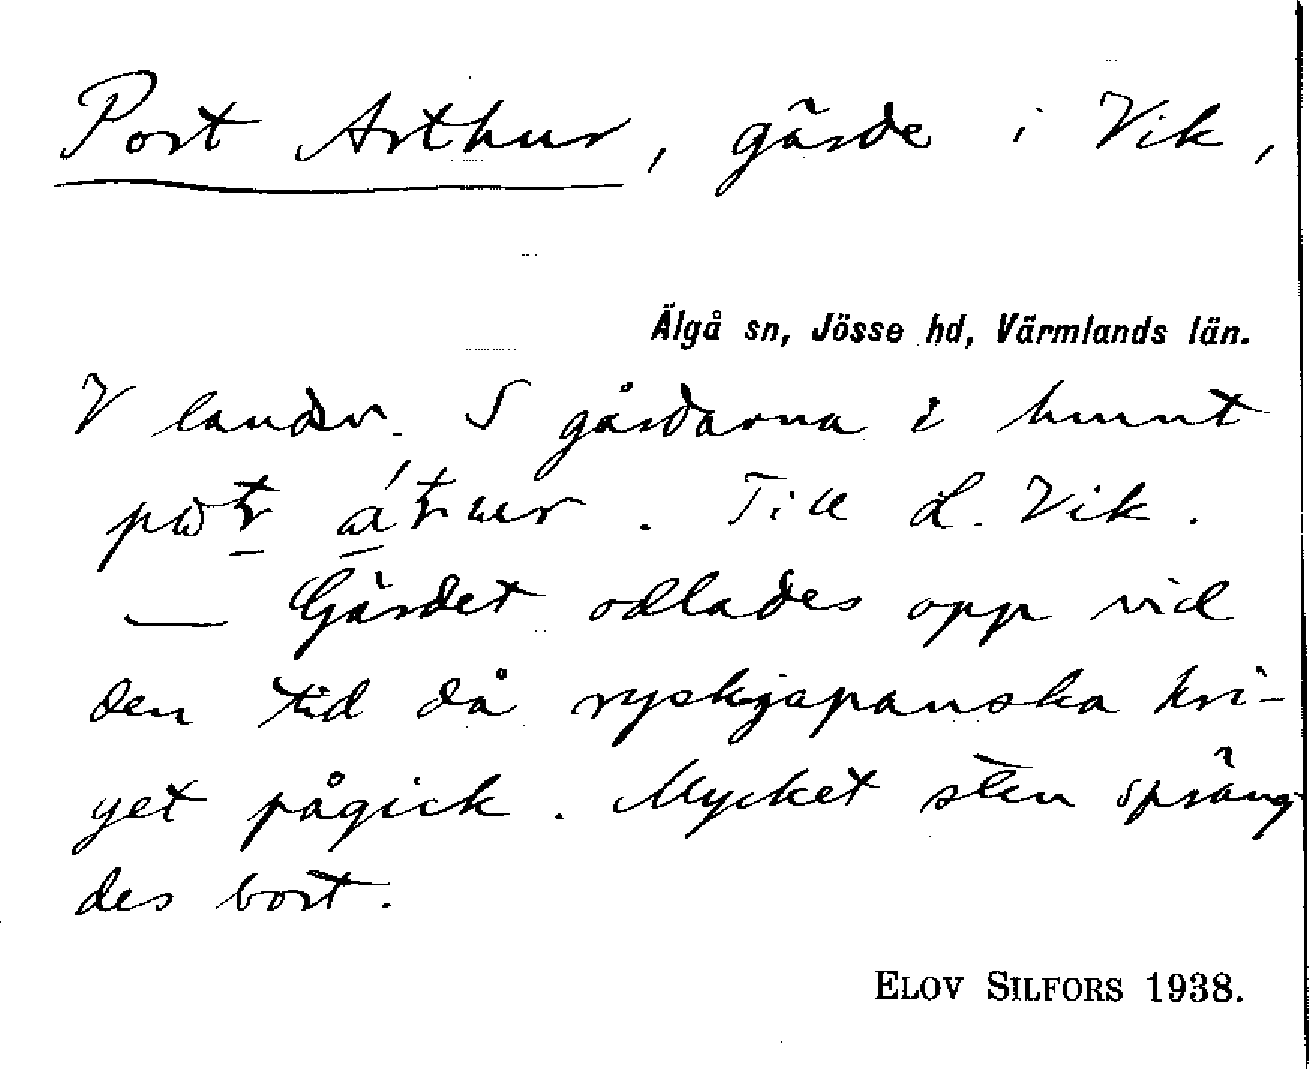 Port Arthur, gärde i Vik,
Älgå sn, Jösse hd, Värmlands län.
V landsv. S gårdarna i
Till L. Vik.
— Gärdet odlades opp vid
den tid då ryskjapanska kri-
get pågick. Mycket sten spräng-
des bort.
ELOV SILFORS 1938.